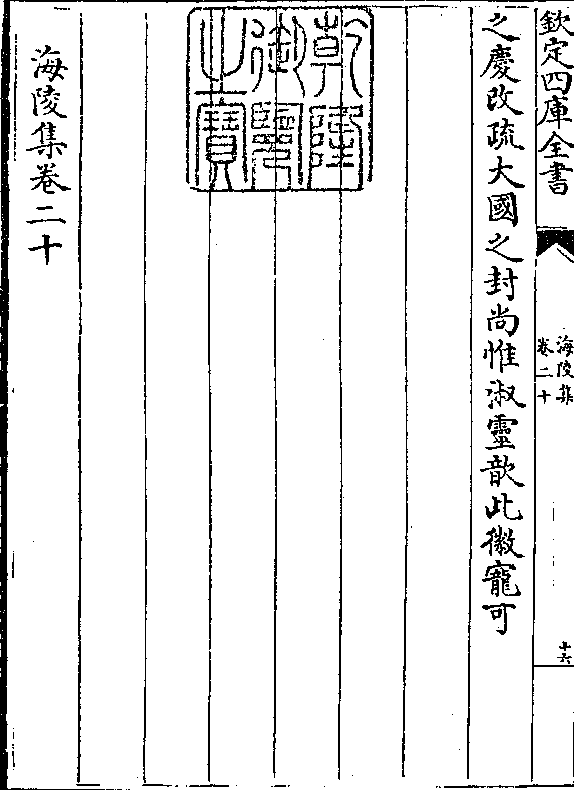 欽定四庫全書
海陵集
卷二十
十六
之慶改疏大國之封尚惟淑靈歆此徽寵可
乾隆
御覽
之寶
海陵集卷二十